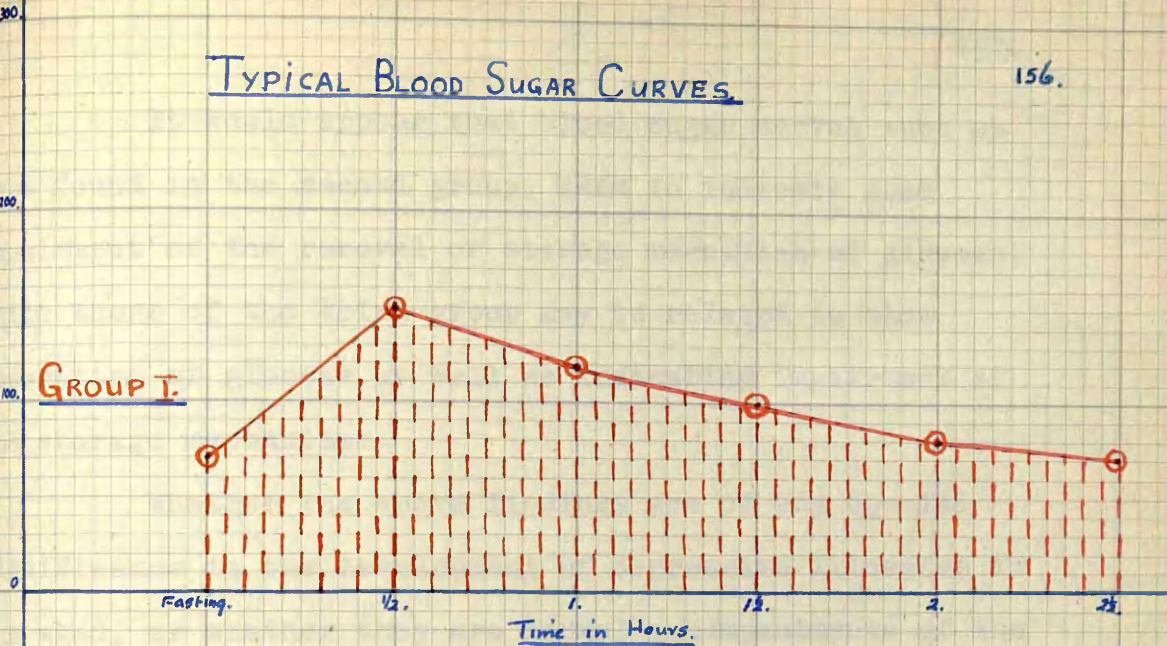 300.
TYPICAL BLOOD SUGAR CURVES.
156.
200.
GROUP I.
100.
0
Fasting.
1/2.
1.
1½.
2.
2½.
Time in Hours.